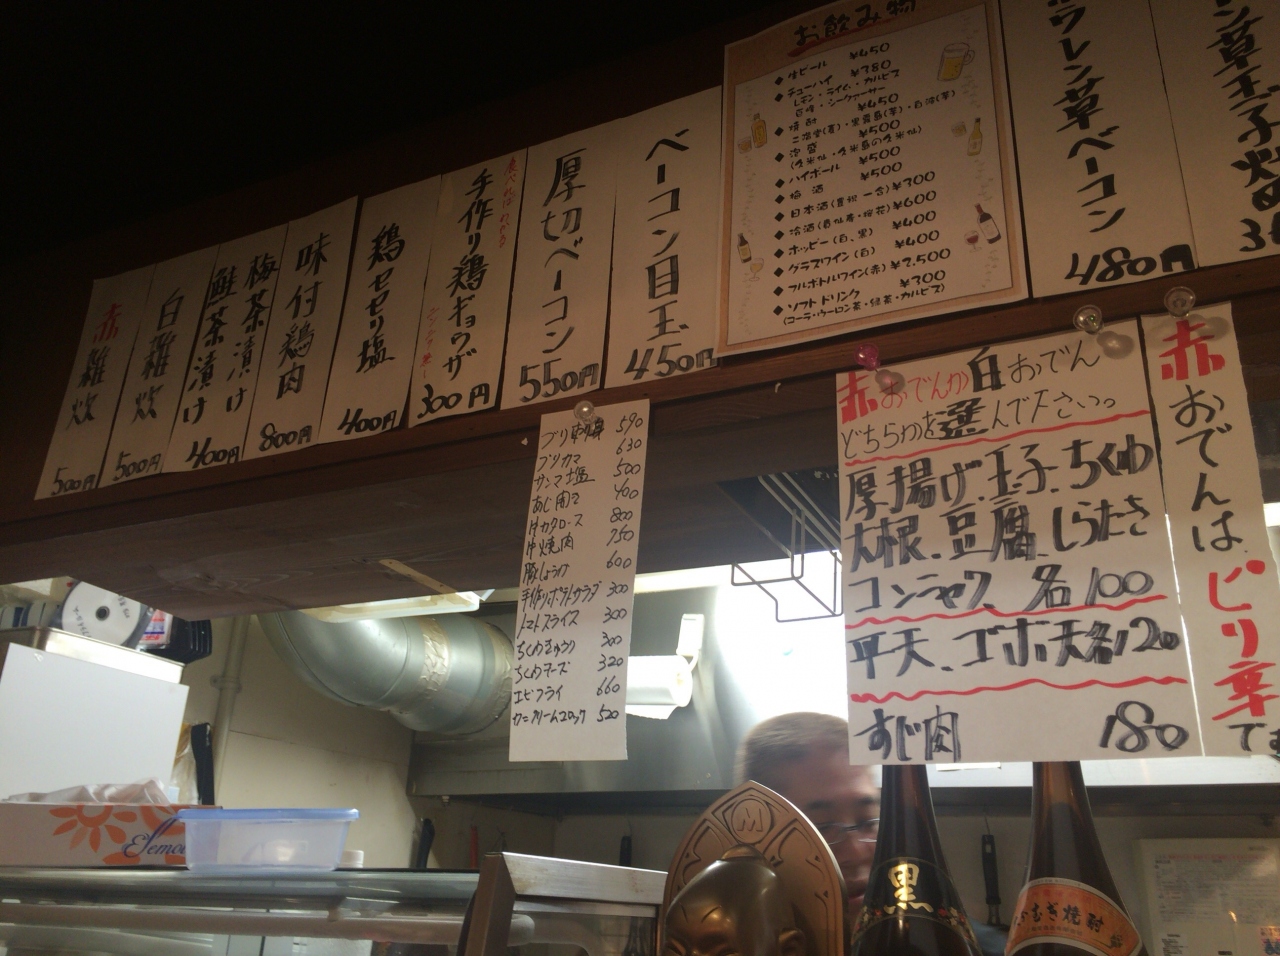 赤雑炊
500円
白雑炊
500円
鮭茶漬け
梅茶漬け
400円
味付鶏肉
800円
鶏セセリ塩
400円
食べればわかる
手作り鶏ギョウザ
300円
厚切ベーコン
550円
ベーコン目玉
450円
お飲み物
◆生ビール ¥450
◆チューハイ ¥380
レモン・ライム・カルピス
・シークァーサー
◆焼酎 ¥450
◆泡盛 ¥500
◆ハイボール ¥500
◆梅酒 ¥500
◆日本酒(一合) ¥300
◆冷酒 ¥600
◆ホッピー(白、黒) ¥400
◆グラスワイン(白) ¥400
◆フルボトルワイン(赤) ¥2,500
◆ソフトドリンク ¥300
(コーラ・ウーロン茶・緑茶・カルピス)
ウレン草ベーコン
480円
ン草玉子炒め
ブリカマ 630
サンマ塩 500
400
800
焼肉 750
600
手作りポテトサラダ 300
トマトスライス 300
ちくわきゅうり 300
ちくわチーズ 320
エビフライ 660
カニクリームコロッケ 520
赤おでんか白おでん
どちらかを選んで下さい。
厚揚げ、玉子、ちくわ
大根、豆腐、しらたき
コンニャク、各100
平天、ゴボ天各120
すじ肉 180
赤おでんはピリ辛で
Elemoi
M
黒
むぎ焼酎